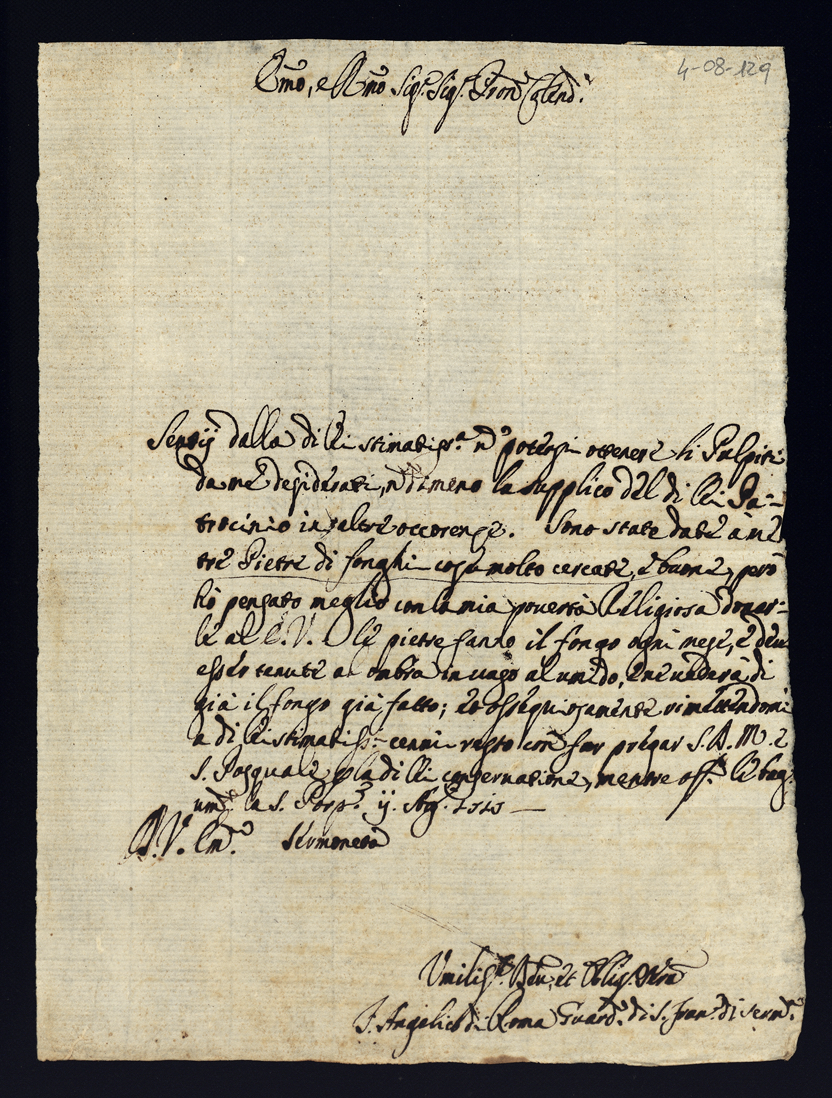 4-08-129
Em̃o, e Rm̃o Sig.r Sig.r Pron Colend.
Sentij dalla di lei stimatiss.a ñ potersi ottenere li Pulpiti
da me desiderati, ñdimeno la supplico del di lei Pa-
trocinio in altre occorenze. Sono state date à me
tre Pietre di fonghi cosa molto cercate, e buone, però
hò pensato meglio con la mia povertà Religiosa donar-
le al E.V. le pietre fanno il fongo ogni mese, e
esser tenute a ombra in vaso al umido, e ne vederà di
già il fongo già fatto; et ossequiosamente rimettendomi
a di lei stimatiss. cenni resto con far pregar S.D.M. e
S. Pasquale p la di lei conservatione, mentre off. le bag.
um.te la S. Porp.a Ag.
D.V. Em. Sermoneta
Umiliss. et Oblig.
F. Angelico di Roma Guard. di S. Fran. di Serm.